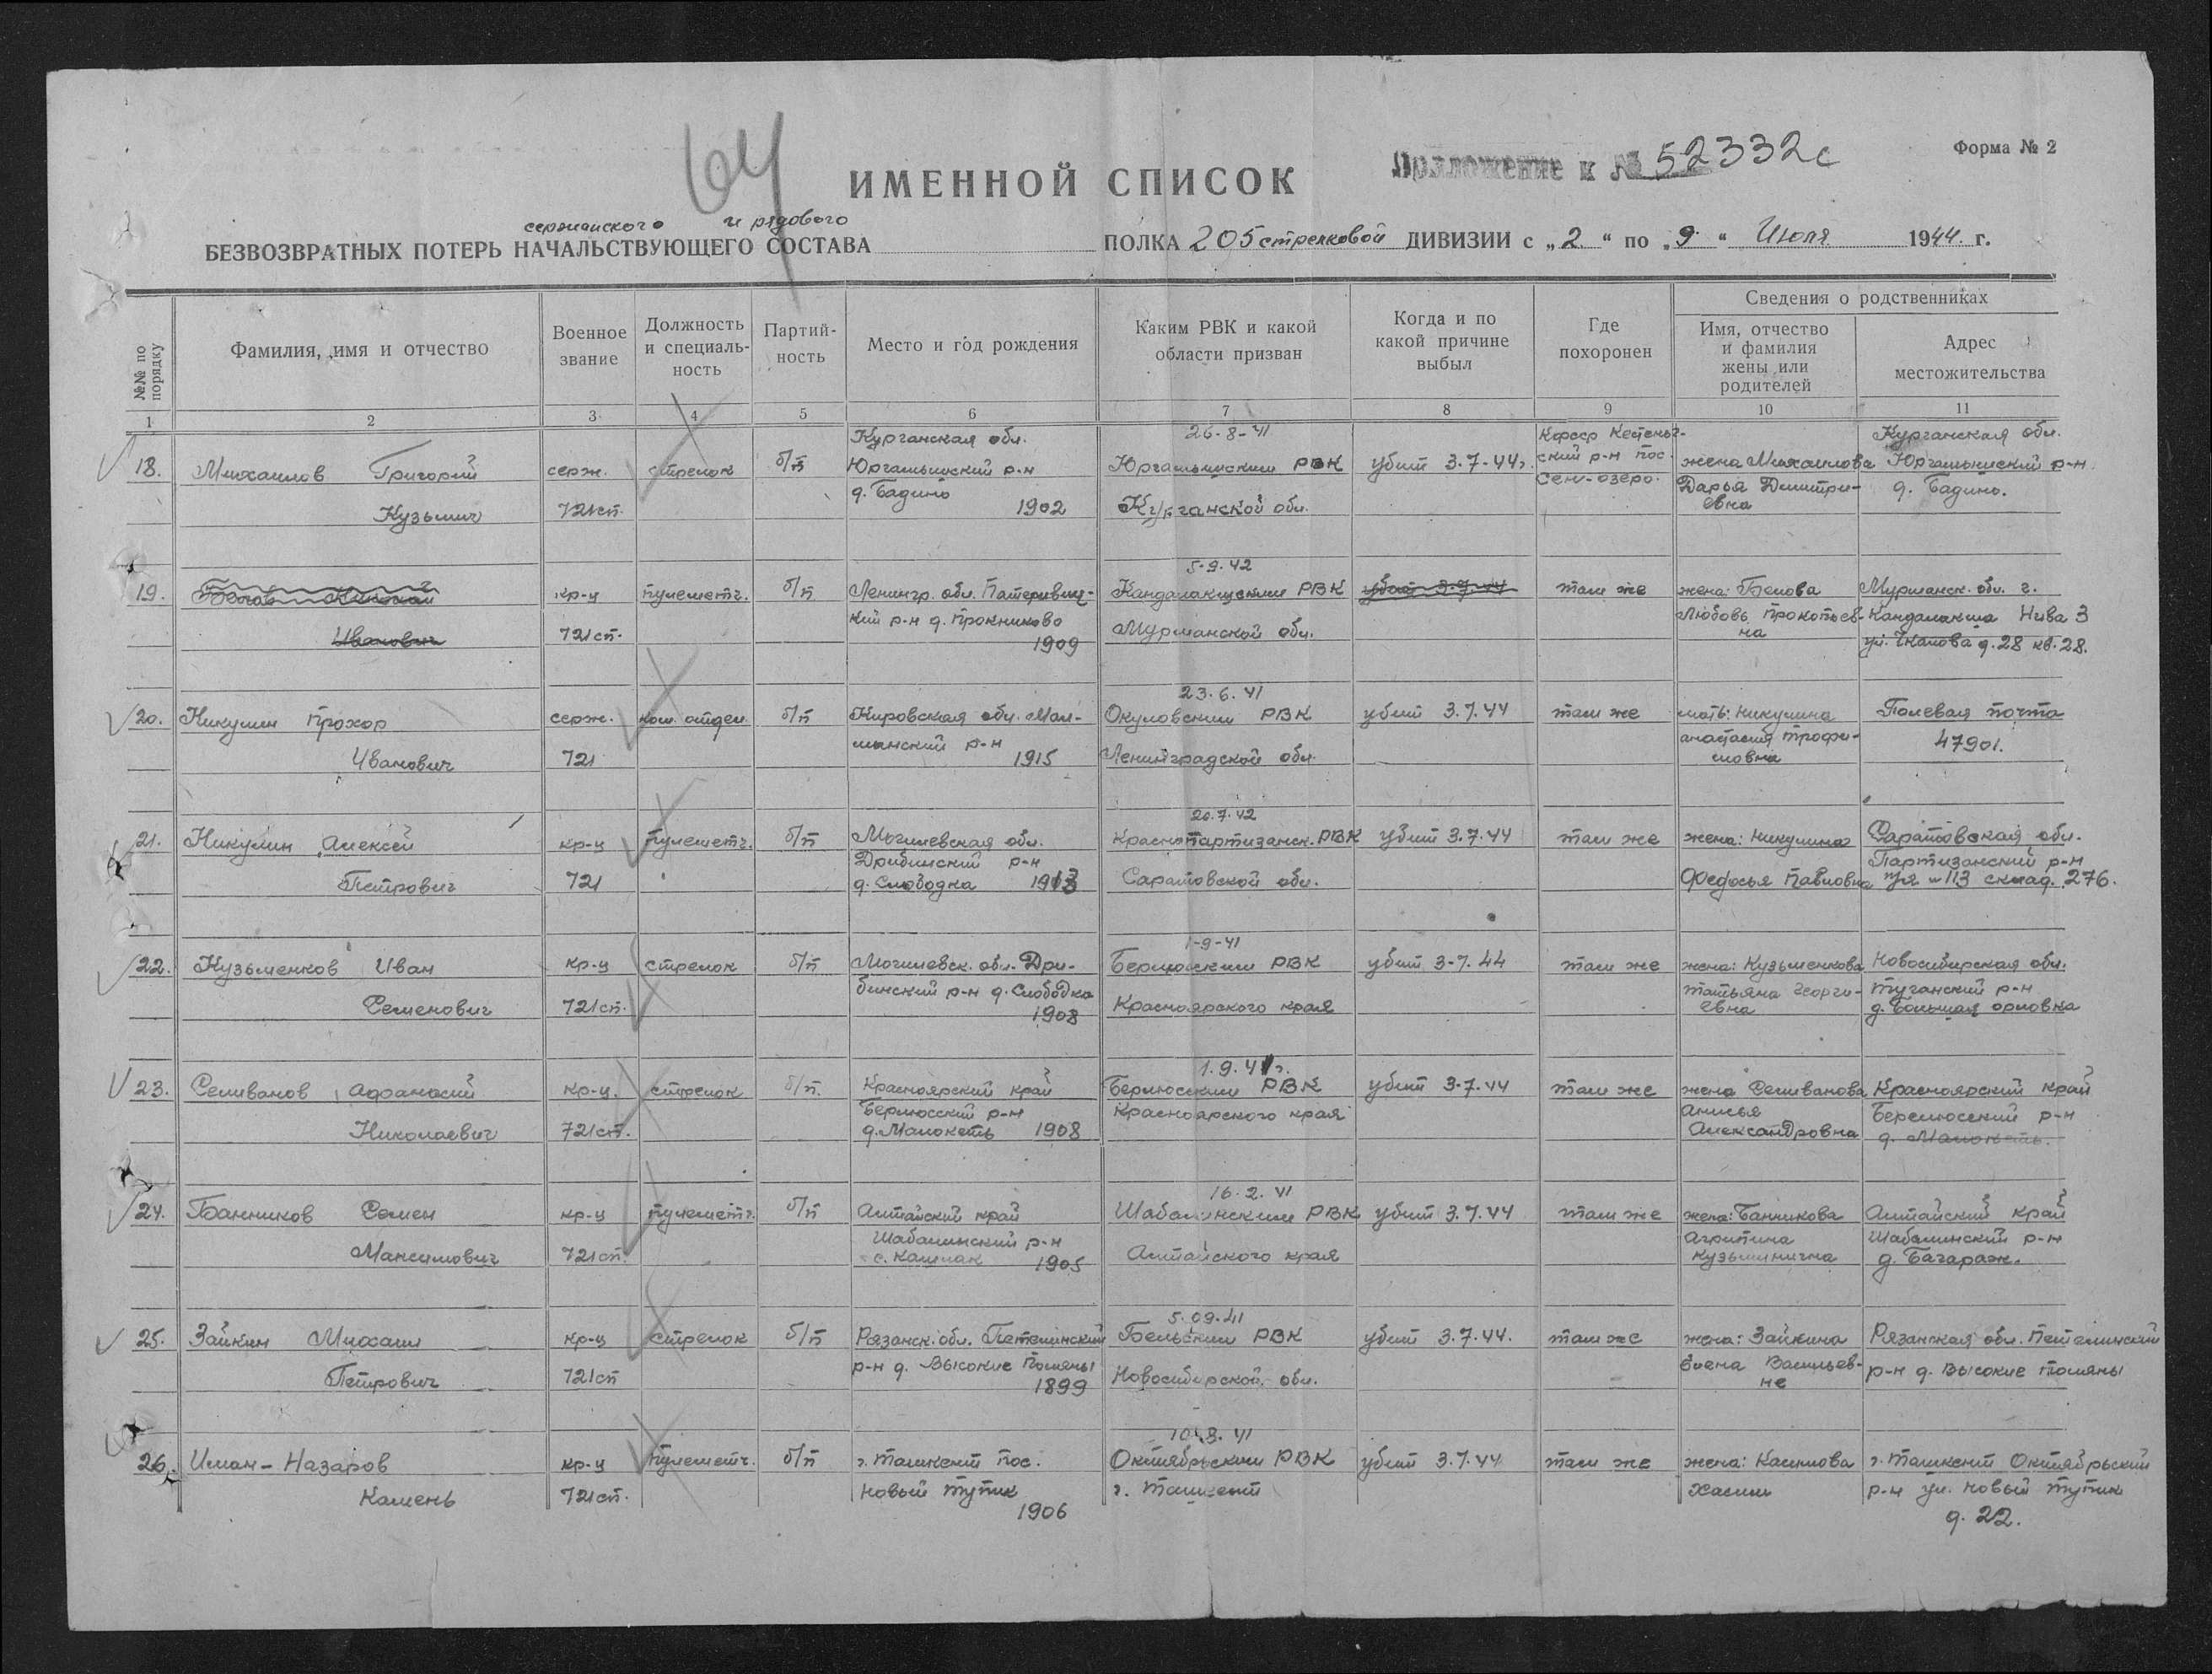 64
Форма № 2
Приложение к № 52332с
ИМЕННОЙ СПИСОК
сержанского и рядового
БЕЗВОЗВРАТНЫХ ПОТЕРЬ НАЧАЛЬСТВУЮЩЕГО СОСТАВА ПОЛКА 205 стрелковой ДИВИЗИИ с „2“ по „9“ Июля 1944 г.
№№ по порядку
Фамилия, имя и отчество
Военное звание
Должность и специаль-ность
Партий-ность
Место и год рождения
Каким РВК и какой области призван
Когда и по какой причине выбыл
Где похоронен
Сведения о родственниках
Имя, отчество и фамилия жены или родителей
Адрес местожительства
1 2 3 4 5 6 7 8 9 10 11
Курганская обл. 26-8-41 Кфсср Кестеньг- Курганская обл.
18. Михаилов Григорий серж. стрелок б/п Юргамышский р-н Юргамышским РВК убит 3.7-44г. ский р-н пос. жена Михаилова Юргамышский р-н
д. Бадино сен-озеро. Дарья Дмитри- д. Бадино.
Кузьмич 721сп. 1902 Курганской обл. евна
5-9.42
19. Белов Николай кр-ц пулеметч. б/п Ленингр. обл. Кандалакшским РВК убит 3.7.44 там же жена: Белова Мурманск. обл. г.
кий р-н д. Прокниково Любовь Прокопьев- Кандалакша Нива 3
Иванович 721сп. 1909 Мурманской обл. на ул. Чкалова д.28 кв.28.
23.6.41
20. Никулин Прохор серж. ком. отдел. б/п Кировская обл. Мал- Окуловским РВК убит 3.7.44 там же мать: Никулина Полевая почта
мыжский р-н Анастасия Трофи- 47901.
Иванович 721 1915 Ленинградской обл. мовна
20.7.42
21. Никулин Алексей кр-ц пулеметч. б/п Могилевская обл. Краснопартизанск. РВК убит 3.7.44 там же жена: Никулина Саратовская обл.
Дрибинский р-н Партизанский р-н
Петрович 721 д. Слободка 1913 Саратовской обл. Федосья Павловна п/я №113 склад. 276.
1-9-41
22. Кузьменков Иван кр-ц стрелок б/п Могилевск. обл. Дри- Берилюсским РВК убит 3-7.44 там же жена: Кузьменкова Новосибирская обл.
бинский р-н д. Слободка Татьяна Георги- Туганский р-н
Семенович 721сп. 1908 Красноярского края евна д. Большая орловка
1.9.41г.
23. Селиванов Афанасий кр-ц. стрелок б/п. Красноярский край Берилюсским РВК убит 3-7.44 там же жена Селиванова Красноярский край
Берилюсский р-н Красноярского края Анисья Берелюсский р-н
Николаевич 721сп. д. Малокеть 1908 Александровна д. Малокеть.
16.2.41
24. Банников Семен кр-ц пулеметч. б/п Алтайский край Шабалинским РВК убит 3.7.44 там же жена: Банникова Алтайский край
Шабалинский р-н Агрипина Шабалинский р-н
Максимович 721сп. с. Камлак 1905 Алтайского края Кузьминична д. Багараж.
5.09.41
25. Зайкин Михаил кр-ц стрелок б/п Рязанск. обл. Петелинский Бельским РВК убит 3.7.44. там же жена: Зайкина Рязанская обл. Петелинский
р-н д. Высокие Поляны Елена Васильев- р-н д. Высокие Поляны
Петрович 721сп 1899 Новосибирской обл. не
10.8.41
26. Иман-Назаров кр-ц пулеметч. б/п г. Ташкент пос. Октябрьским РВК убит 3.7.44 там же жена: Касимова г. Ташкент Октябрьский
Камень 721сп. новый тупик г. Ташкент Хасии р-н ул. Новый тупик
1906 д. 22.